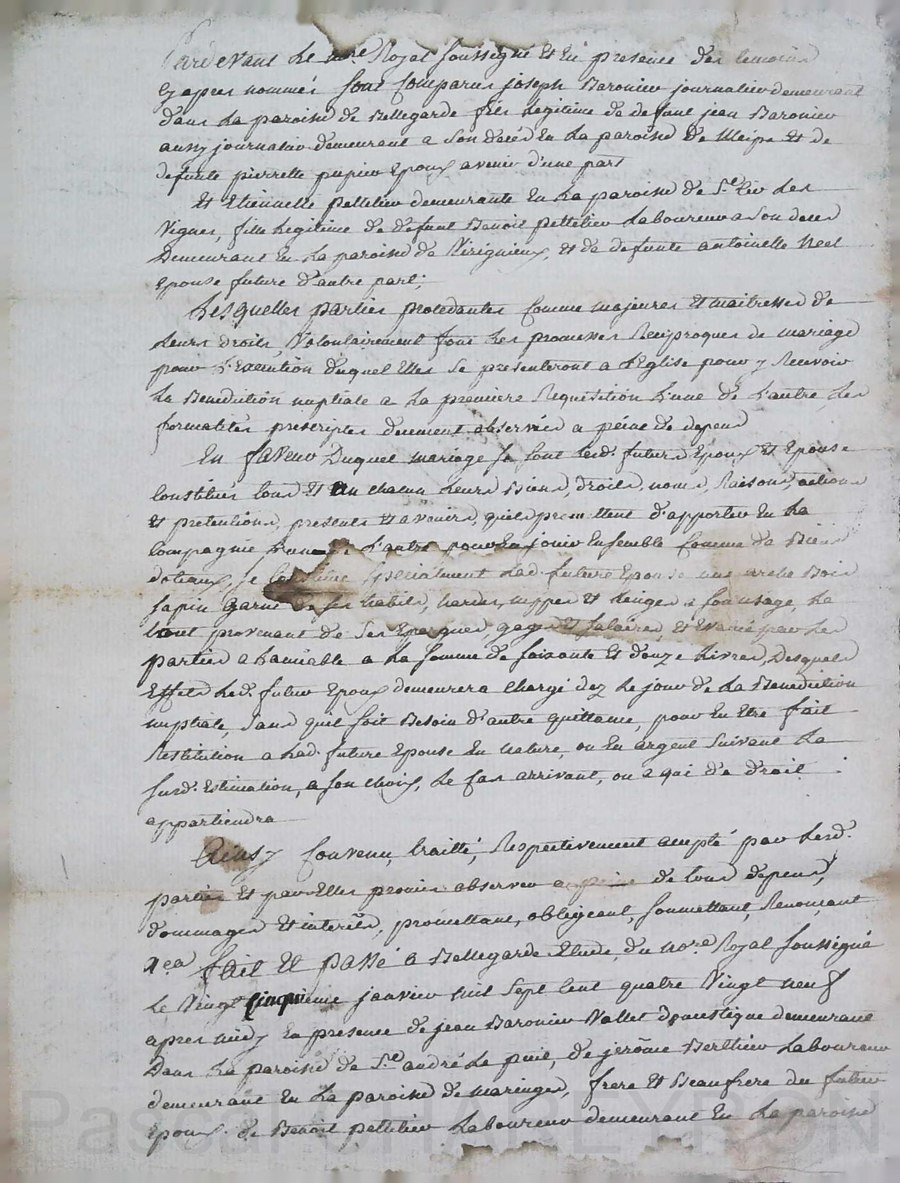 Pardevant le nore Royal soussigné et en presence des temoins
cy apres nommés sont comparus joseph Baronier journalier demeurant
dans la paroisse de Bellegarde fils legitime de defunt jean Baronier
aussy journalier demeurant a son decé en la paroisse de Meips et de
defunte pierrette pupier epoux avenir d'une part
Et Etiennette pelletier demeurante en la paroisse de St Cir les
Vignes, fille legitime de defunt Benoit pelletier laboureur a son deces
Demeurant en la paroisse de Virignieux, et de defunte antoinette Neel
epouse future d'autre part;
Lesquelles parties procedantes comme majeures et maitresses de
leurs droits Volontairement font les promesses Reciproques de mariage
pour l'Execution duquel Elles se presenteront a l'Eglise pour y Recevoir
la Benediction nuptiale a la premiere Requisition l'une de l'autre, les
formalités prescriptes duement observées a peine de depens
En faveur Duquel mariage se sont lesd. futurs Epoux et Epouse
Constitués tous et un chacun leurs Biens, droits, noms, Raisons, actions
et pretentions, presents et avenirs, quils promettent d'apporter en la
Compagnie l'un de l'autre pour en jouir Ensemble comme de Biens
dotaux, se constitue specialment lad. future Epouse une arche Bois
sapin garnie de ses habits, hardes, nippes et linges a son usage, le
tout provenant de ses Epargnes, gages et salaires, et Evalué par les
parties a l'amiable a la somme de soixante et douze livres, Desquels
Effets led. futur Epoux demeurera chargé dez le jour de la Benediction
nuptiale, sans quil soit Besoin d'autre quittance, pour en etre fait
Restitution a lad. future Epouse en nature, ou en argent suivant la
susd. Estimation, a son choix, le cas arrivant, ou a qui de droit
appartiendra
Ainsy convenu, traitté, Respectivement accepté par lesd.
parties et par Elles promis observer a peine de tous depens,
dommages et interets, promettant, obligeant, soumettant, Renonçant
&ca fait et passé a Bellegarde Etude du nore Royal soussigné
le Vingt cinquieme janvier mil sept cent quatre Vingt neuf
apres midy en presence de jean Baronier Vallet domestique demeurant
Dans la paroisse de St andré le puit, de jerôme Berthier laboureur
demeurant en la paroisse de maringes, frere et Beaufrere du futur
epoux, de Benoit pelletier laboureur demeurant en la paroisse
Pascal CHAREYRON